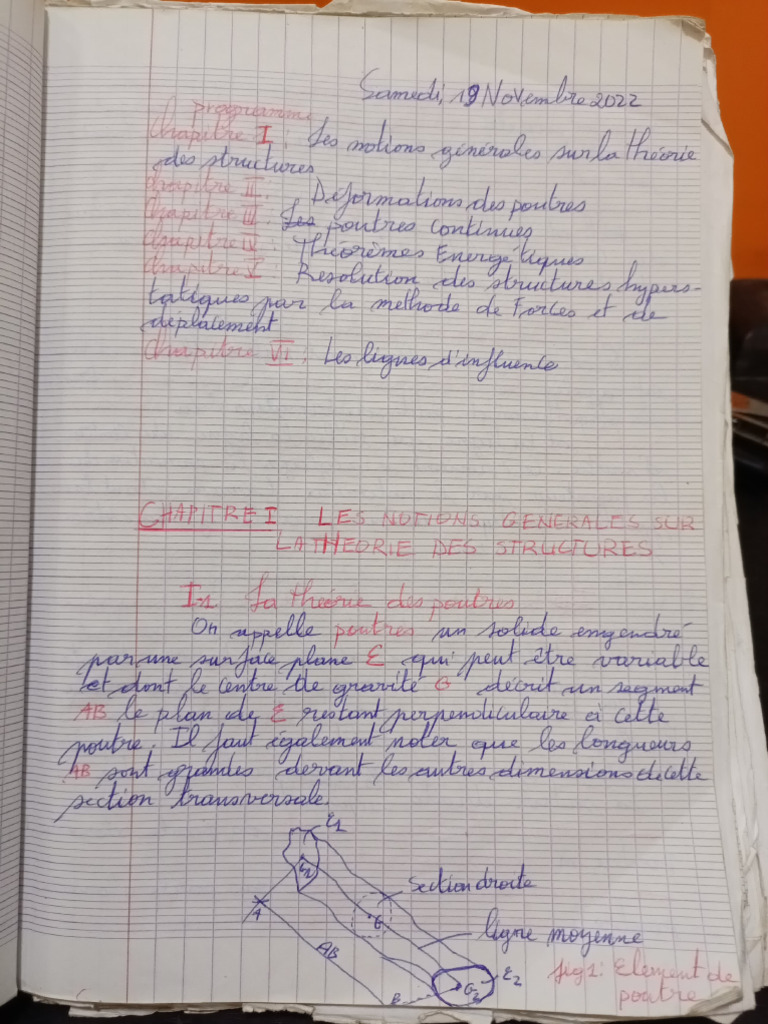 Samedi, 19 Novembre 2022
programme
Chapitre I : Les notions générales sur la théorie
des structures
Chapitre II : Déformations des poutres
Chapitre III : poutres continues
Chapitre IV : Théorèmes Energétiques
Chapitre V : Resolution des structures hypers-
tatiques par la methode de Forces et de
déplacement
Chapitre VII : Les lignes d'influence
CHAPITRE I LES NOTIONS GENERALES SUR
LA THEORIE DES STRUCTURES
I-1 La théorie des poutres
On appelle poutres un solide engendré
par une surface plane Σ qui peut être variable
et dont le centre de gravité G décrit un segment
AB le plan de Σ restant perpendiculaire à cette
poutre. Il faut également noter que les longueurs
AB sont grandes devant les autres dimensions de cette
section transversale.
Σ1
G1
Section droite
A
G
ligne moyenne
AB
Σ2
G2
B
fig1: Element de
poutre